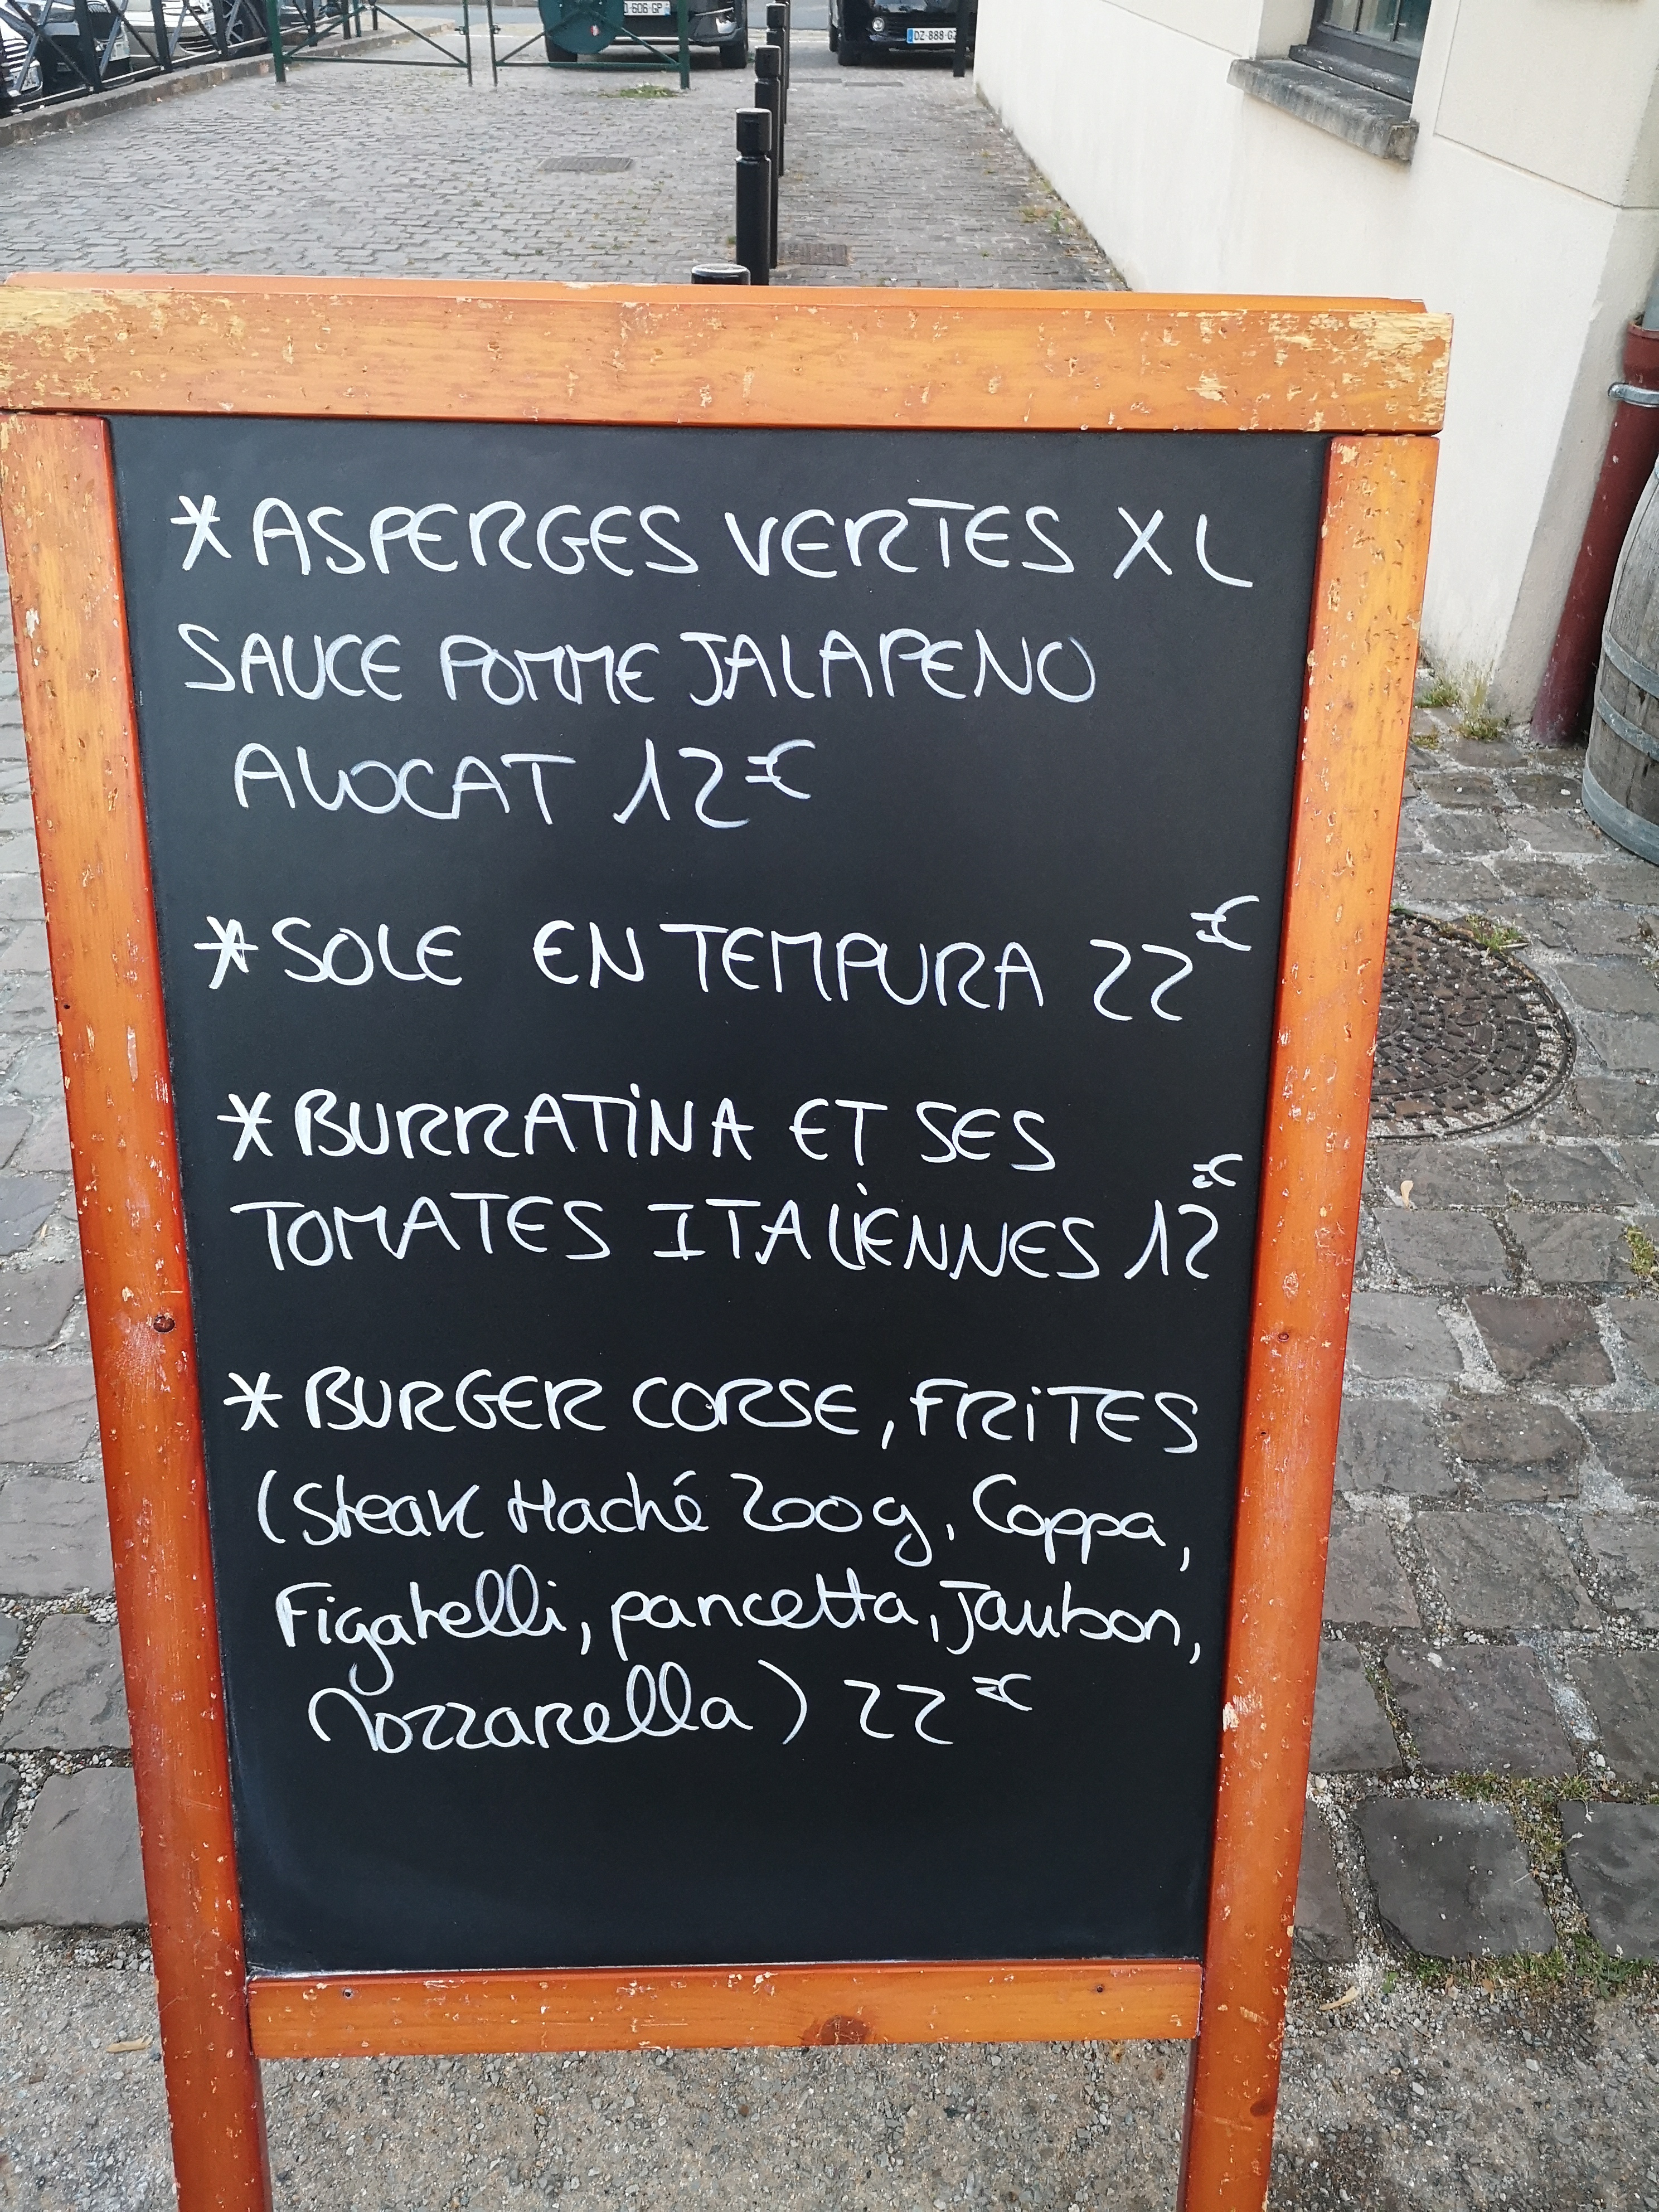 606 GP
DZ 888 G
*ASPERGES VERTES XL
SAUCE POMME JALAPENO
AVOCAT 12€
*SOLE EN TEMPURA 22€
*BURRATINA ET SES
TOMATES ITALIENNES 12€
*BURGER CORSE, FRITES
(Steak Haché 200g, Coppa,
Figatelli, pancetta, Jambon,
Mozzarella) 22€